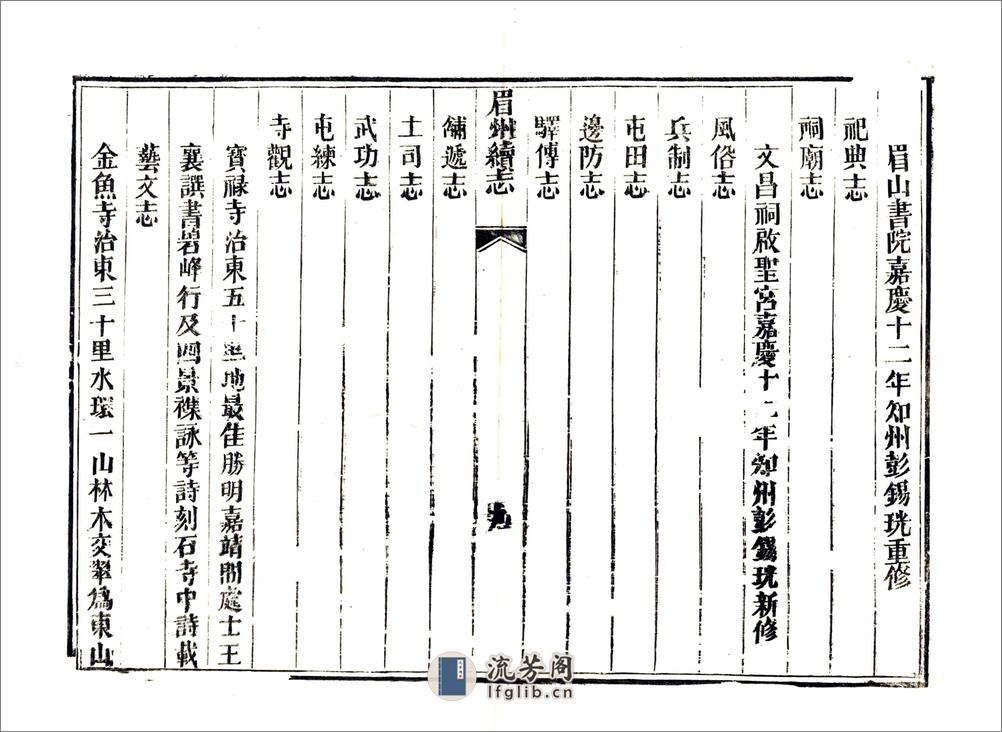 眉山書院嘉慶十二年知州彭錫珖重修
祀典志
祠廟志
文昌祠啟聖宮嘉慶十二年知州彭錫珖新修
風俗志
兵制志
屯田志
邊防志
驛傳志
眉州續志
鋪遞志
土司志
武功志
屯練志
寺觀志
寳祿寺治東五十里地最佳勝明嘉靖間處士王
襄譔書岩峰行及四景襍詠等詩刻石寺中詩載
藝文志
金魚寺治東三十里水環一山林木交翠為東山
流芳阁
lfglib.cn